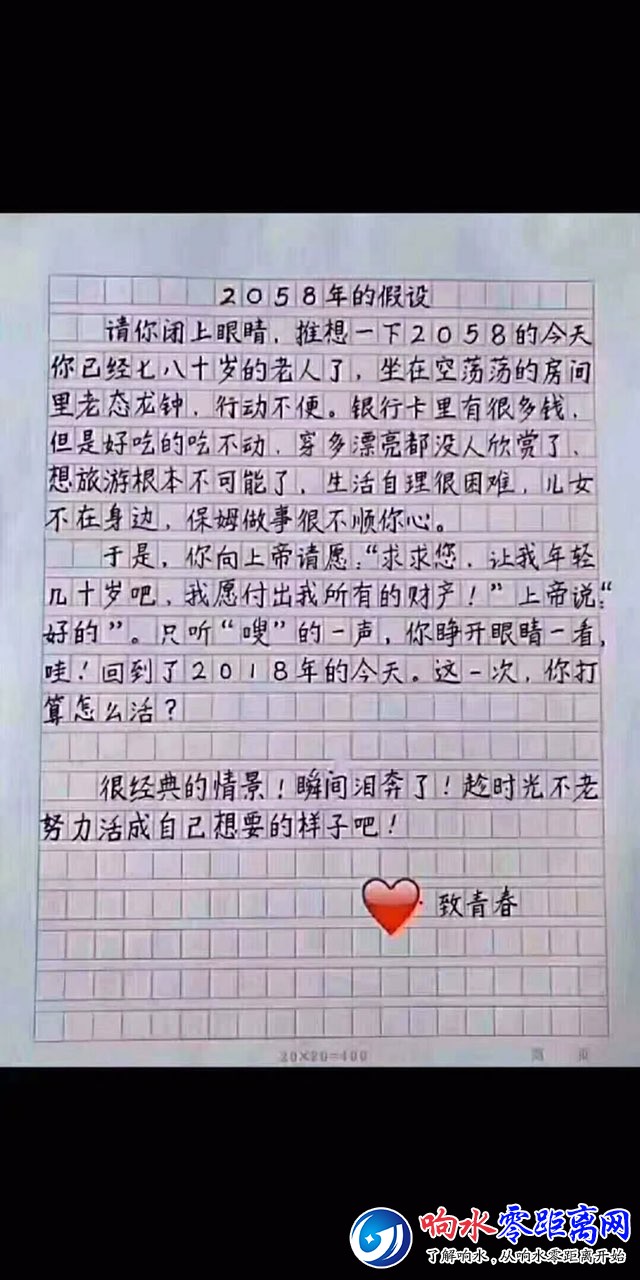 2058年的假设
请你闭上眼睛，推想一下2058的今天
你已经七八十岁的老人了，坐在空荡荡的房间
里老态龙钟，行动不便。银行卡里有很多钱，
但是好吃的吃不动，穿多漂亮都没人欣赏了，
想旅游根本不可能了，生活自理很困难，儿女
不在身边，保姆做事很不顺你心。
于是，你向上帝请愿：“求求您，让我年轻
几十岁吧，我愿付出我所有的财产！”上帝说：“
好的”。只听“嗖”的一声，你睁开眼睛一看，
哇！回到了2018年的今天。这一次，你打
算怎么活？
很经典的情景！瞬间泪奔了！趁时光不老
努力活成自己想要的样子吧！
致青春
20×20=400
页
响水零距离网
了解响水，从响水零距离开始